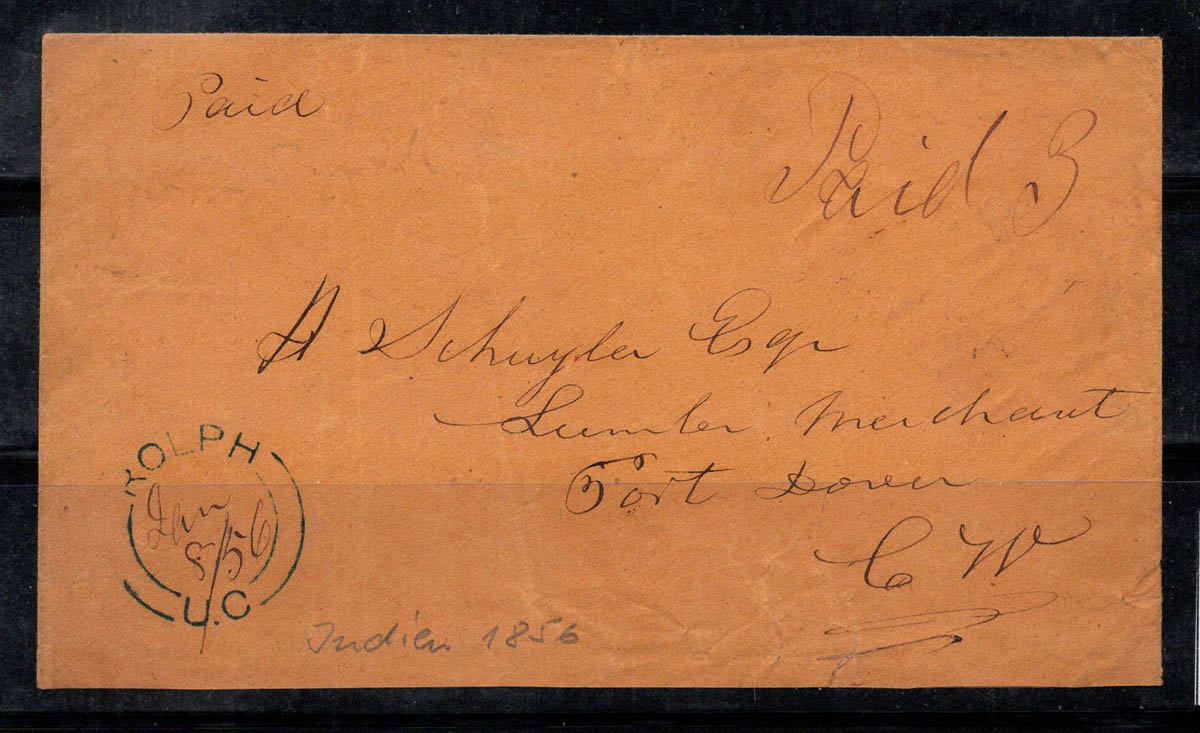 Paid
Paid 3
A Schuyler Esqr
Lumber Merchant
Port Dover
C W
ROLPH
Jan
8/56
U.C
Indien 1856